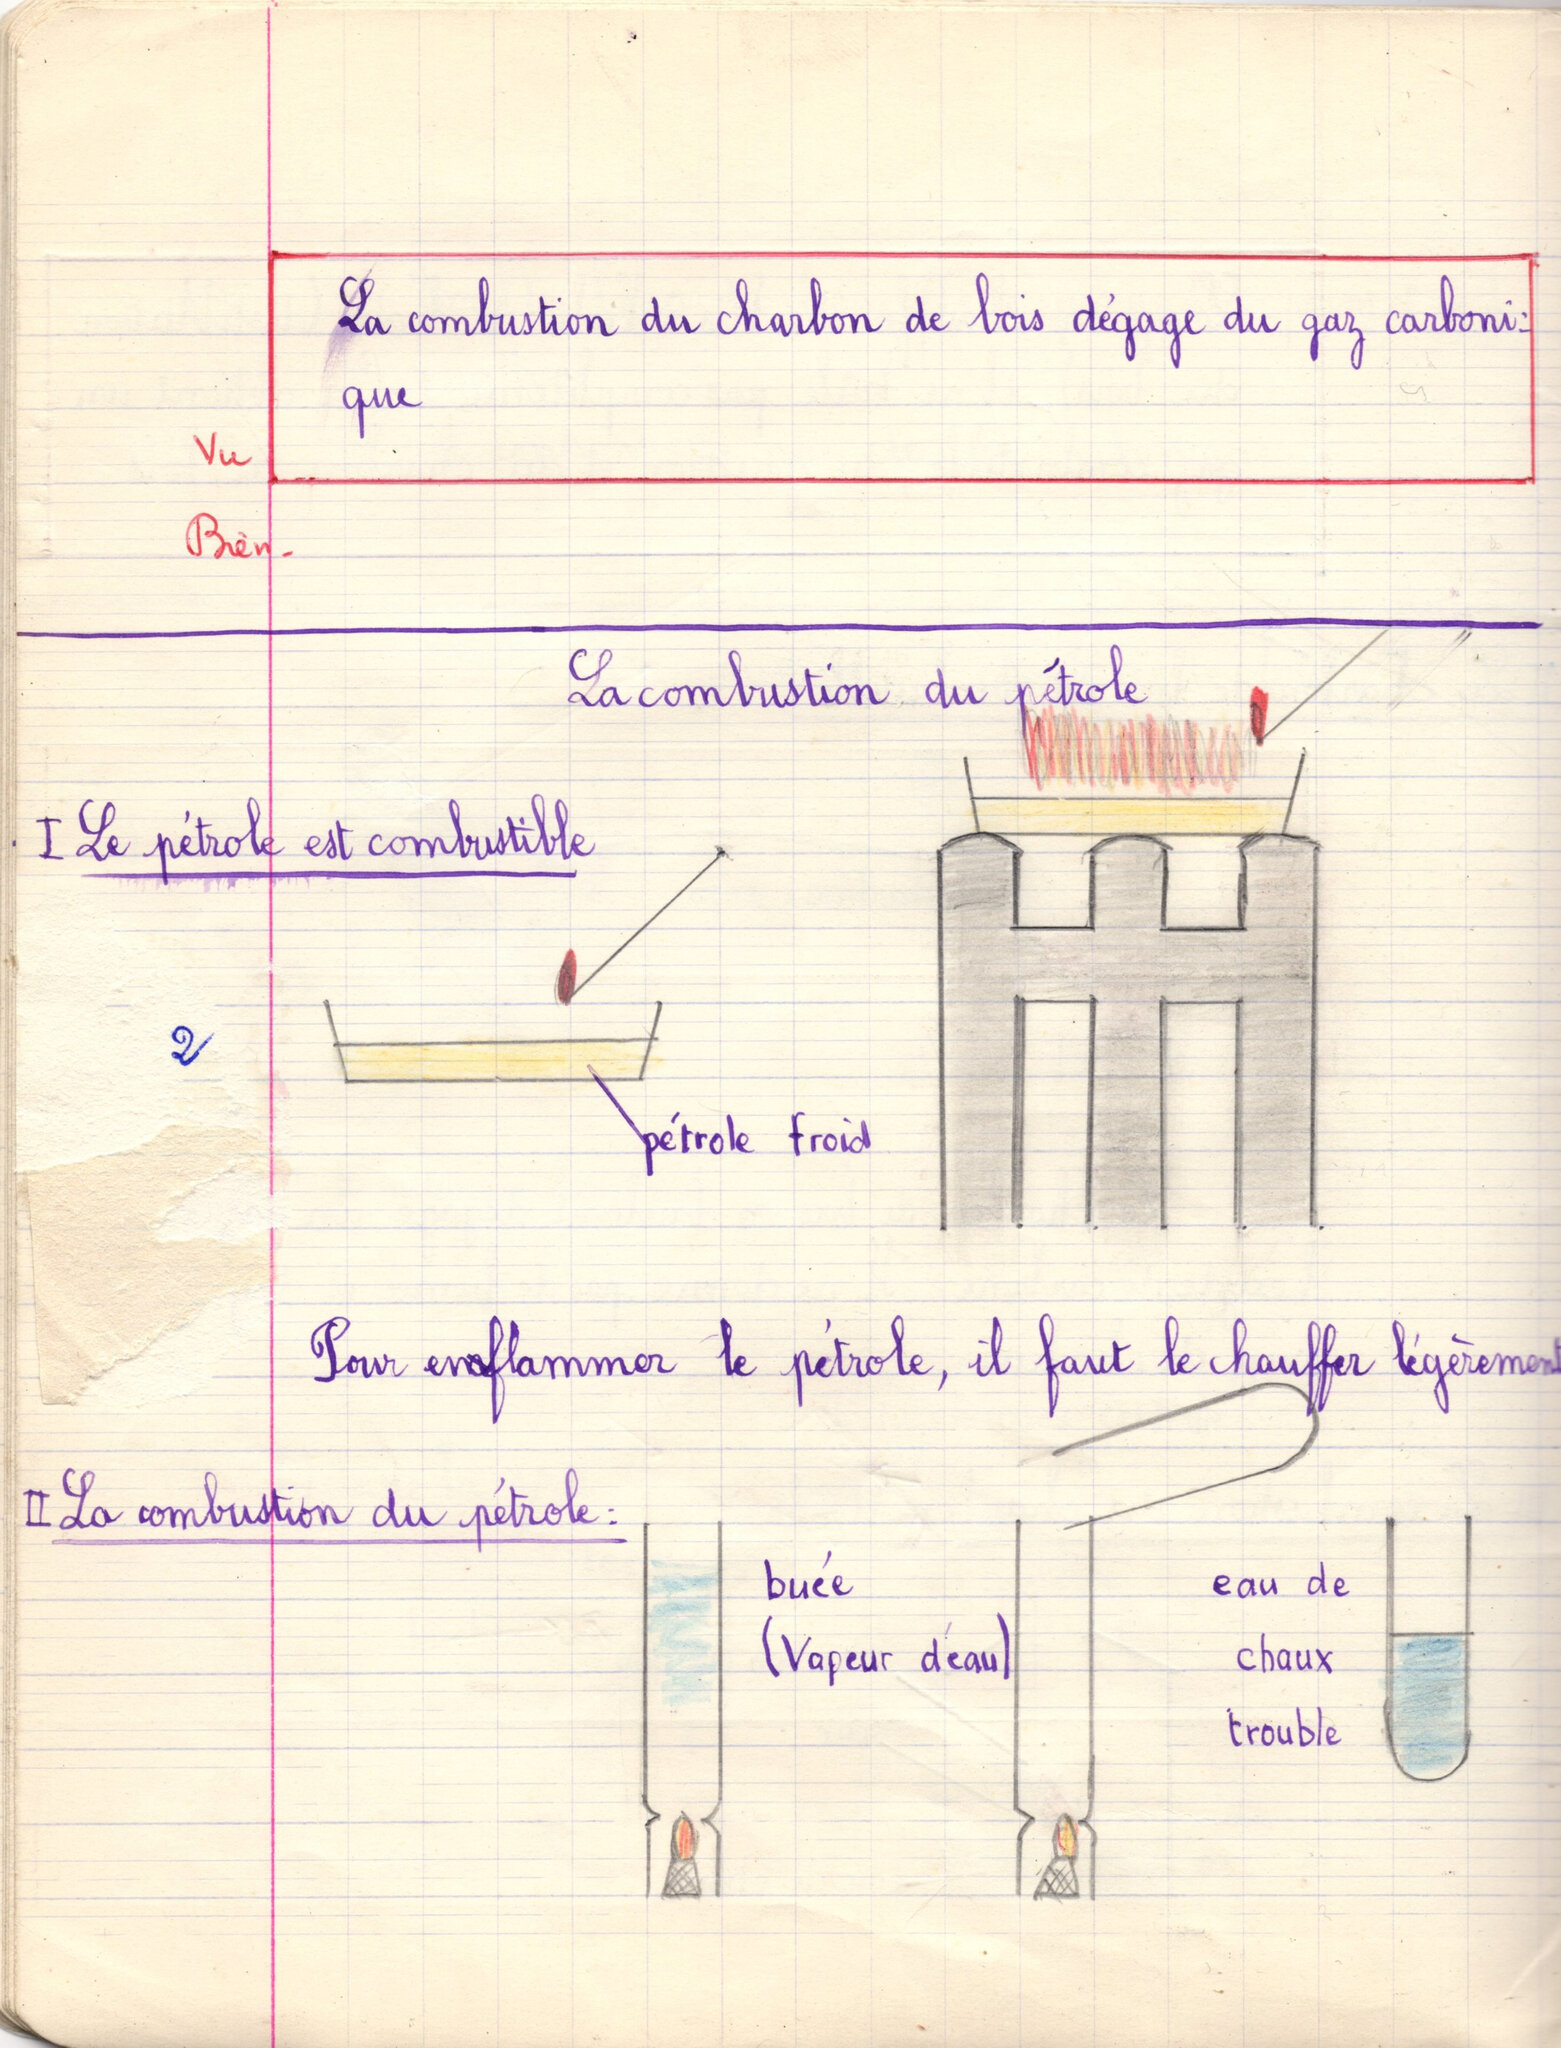 La combustion du charbon de bois dégage du gaz carboni:
que
Vu
Bien.
La combustion du pétrole
I Le pétrole est combustible
2
pétrole froid
Pour enflammer le pétrole, il faut le chauffer légèrement
II La combustion du pétrole:
buée
(Vapeur d'eau)
eau de
chaux
trouble